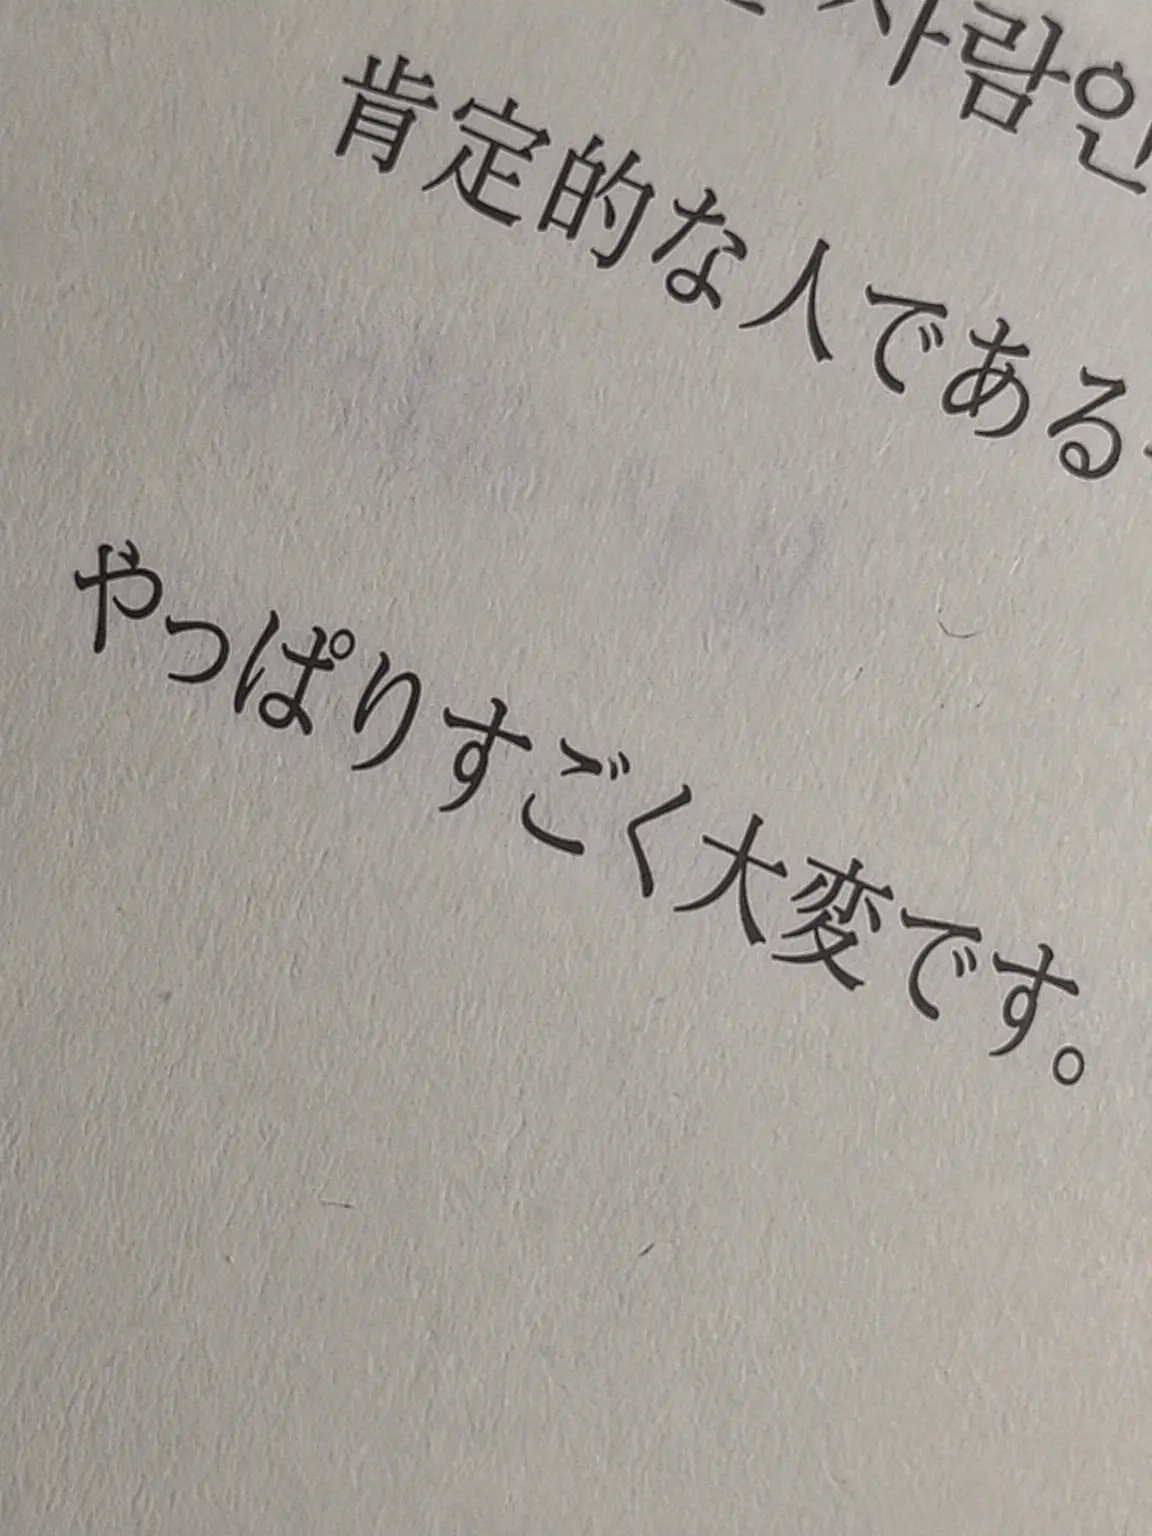 사람인
肯定的な人である
やっぱりすごく大変です。